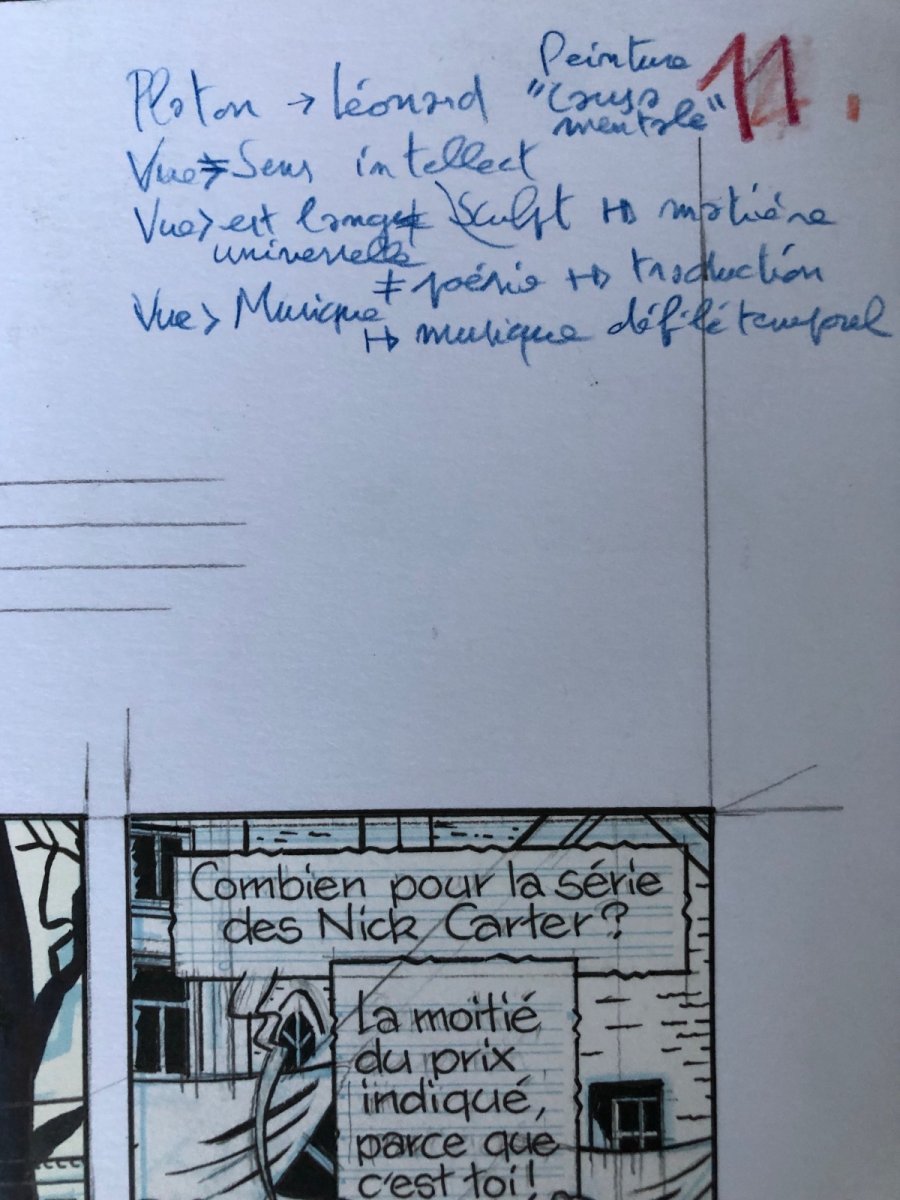 Peinture 11.
Platon → Léonard "Causa
mentale"
Vue ≠> Sens intellect
Vue > est langue ≠ Sculpt ↦ matière
universelle
≠ poésie ↦ traduction
Vue > Musique
↦ musique défilé temporel
Combien pour la série
des Nick Carter ?
La moitié
du prix
indiqué,
parce que
c'est toi !